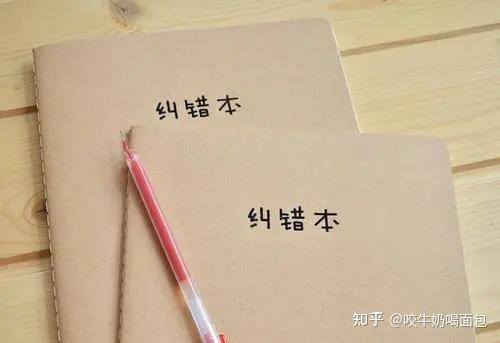 纠错本
纠错本
知乎 @咬牛奶喝面包